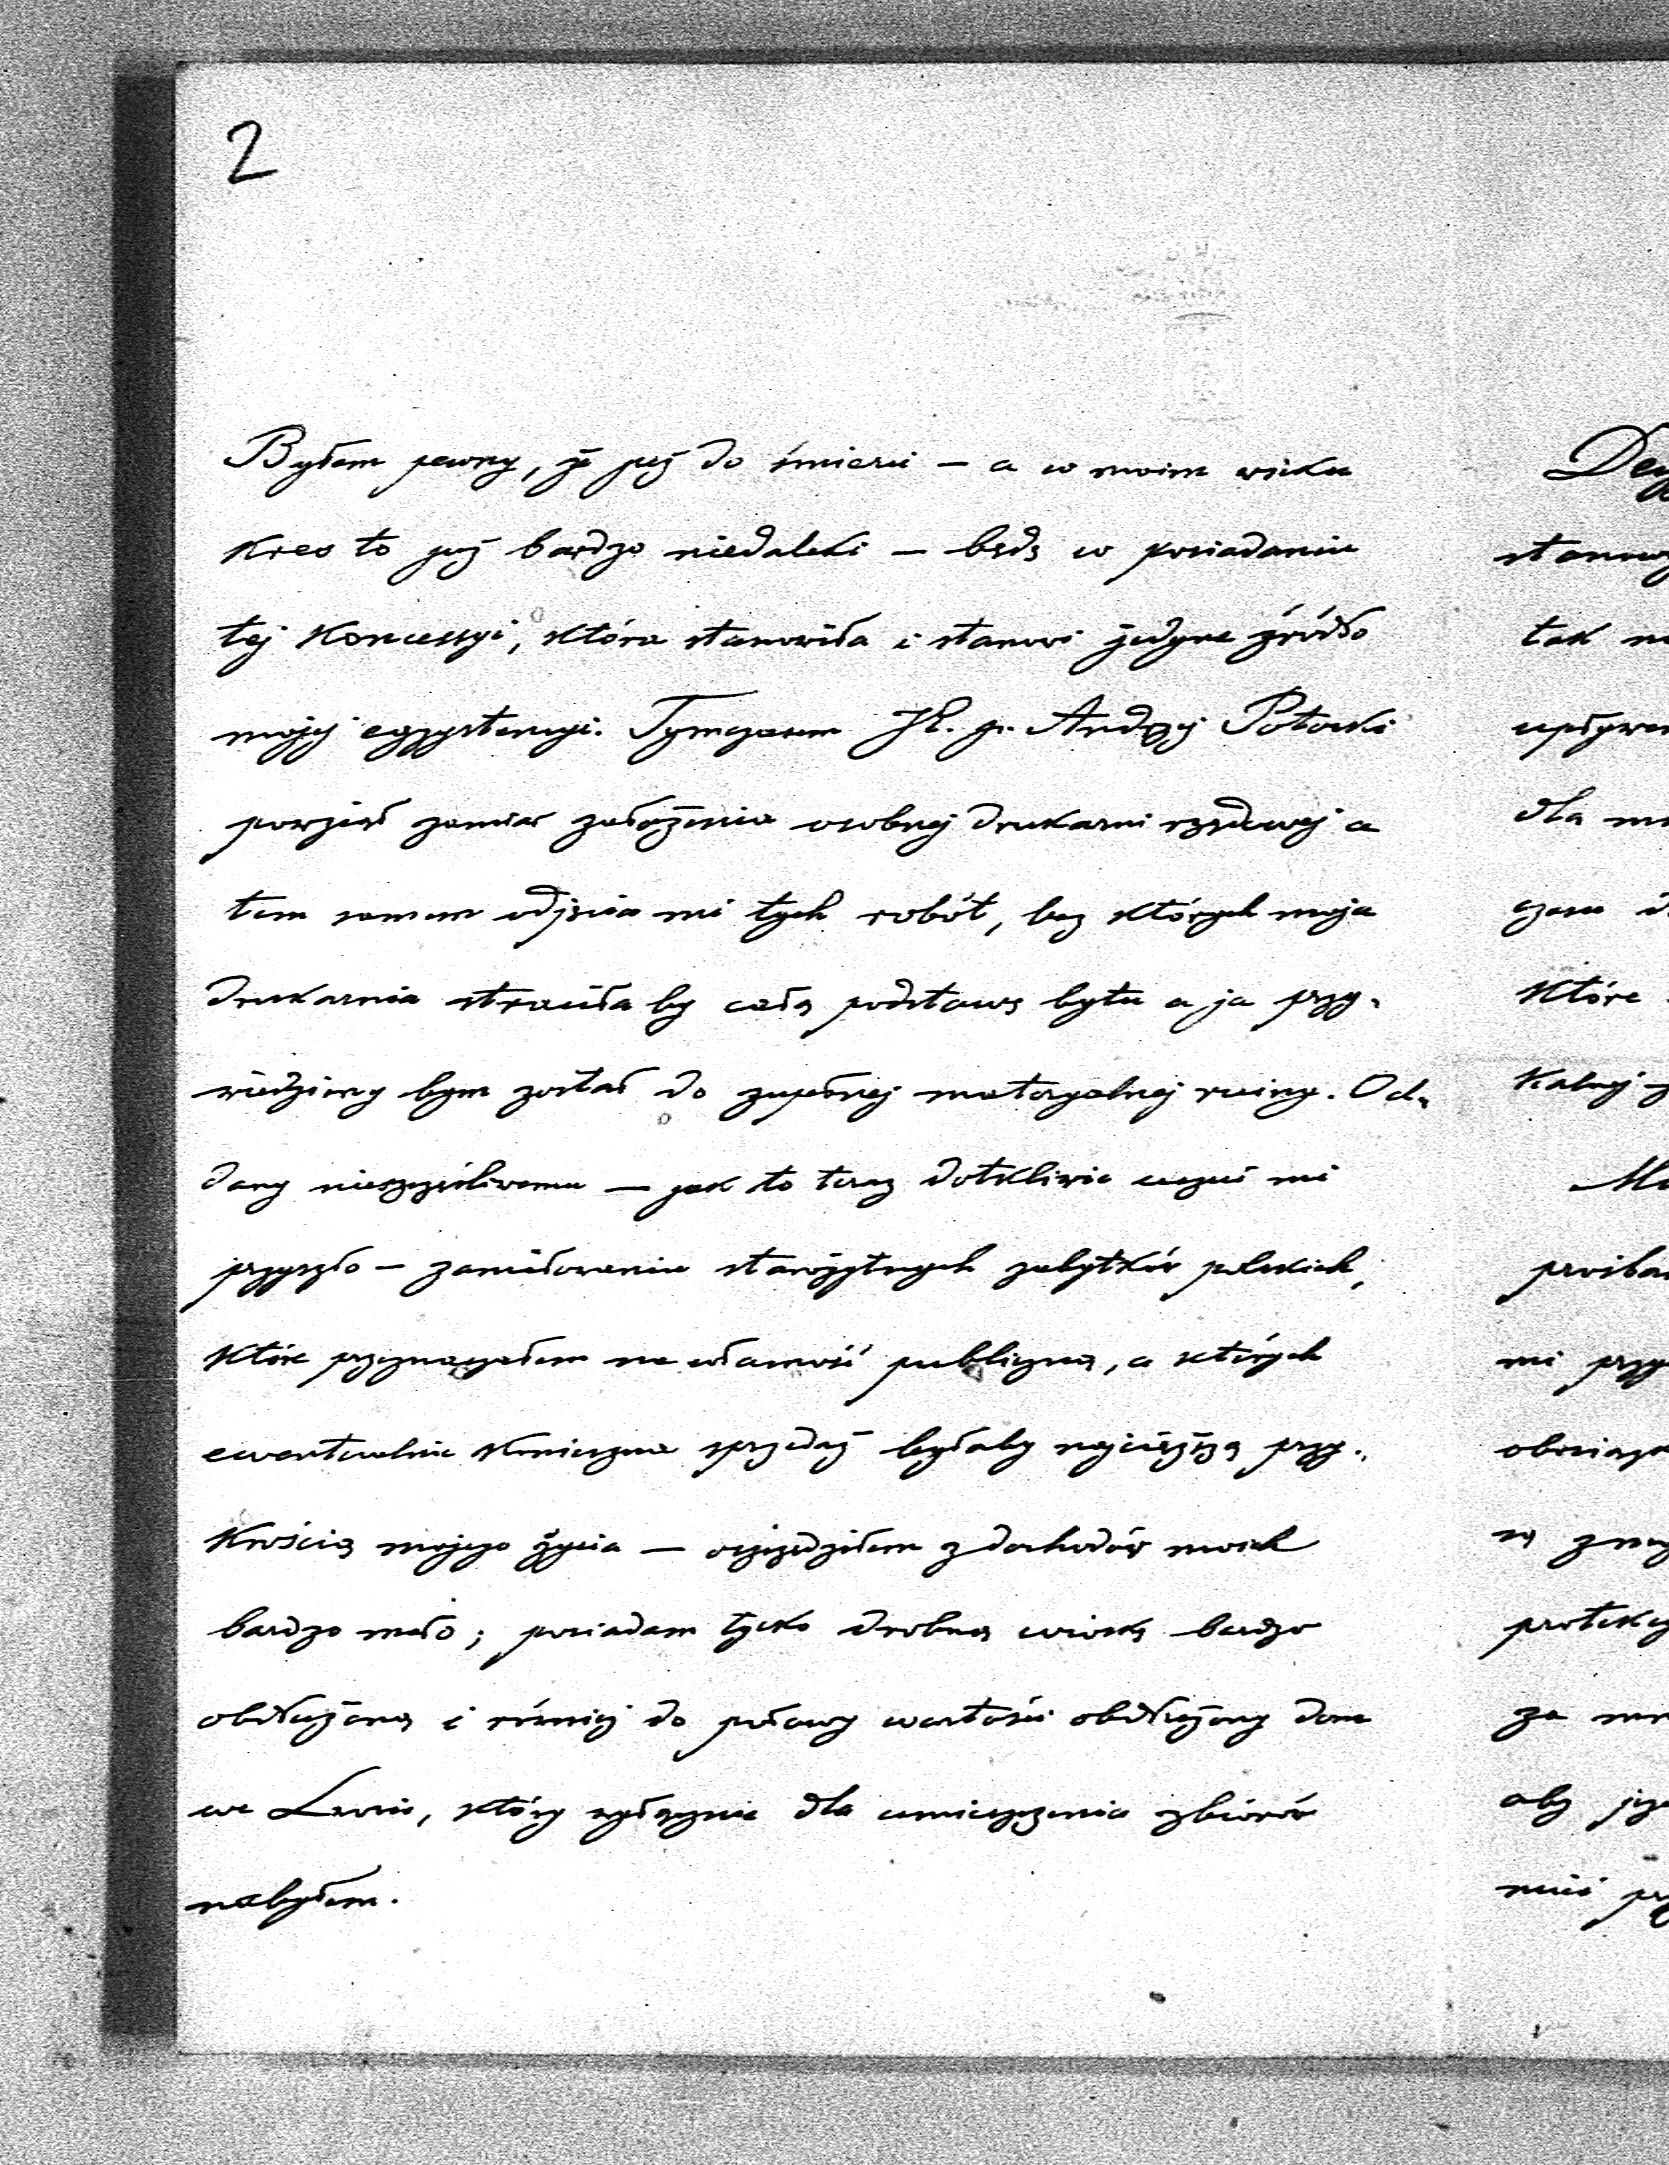 2
Byłem pewny, że już do śmierci — a w moim wieku
kres to już bardzo niedaleki — będę w posiadaniu
tej koncessyi, która stanowiła i stanowi jedyne źródło
mojej egzystencyi. Tymczasem JE. p. Andrzej Potocki
powziął zamiar założenia osobnej drukarni rządowej a
tem samem odjęcia mi tych robót, bez których moja
drukarnia straciła by całą podstawę bytu a ja przy-
wiedziony bym został do zupełnej materyalnej ruiny. Od-
dany nieszczęśliwemu — jak to teraz dotkliwie uczuć mi
przyszło — zamiłowaniu starożytnych zabytków polskich,
które przeznaczałem na własność publiczną, a których
ewentualnie konieczna sprzedaż byłaby najcięższą przy-
krością mojego życia — oszczędziłem z dochodów moich
bardzo mało; posiadam tylko drobną wioskę bardzo
obdłużoną i również do połowy wartości obdłużony dom
we Lwowie, który wyłącznie dla umieszczenia zbiorów
nabyłem.
tak
dla
które
mi
za
aby